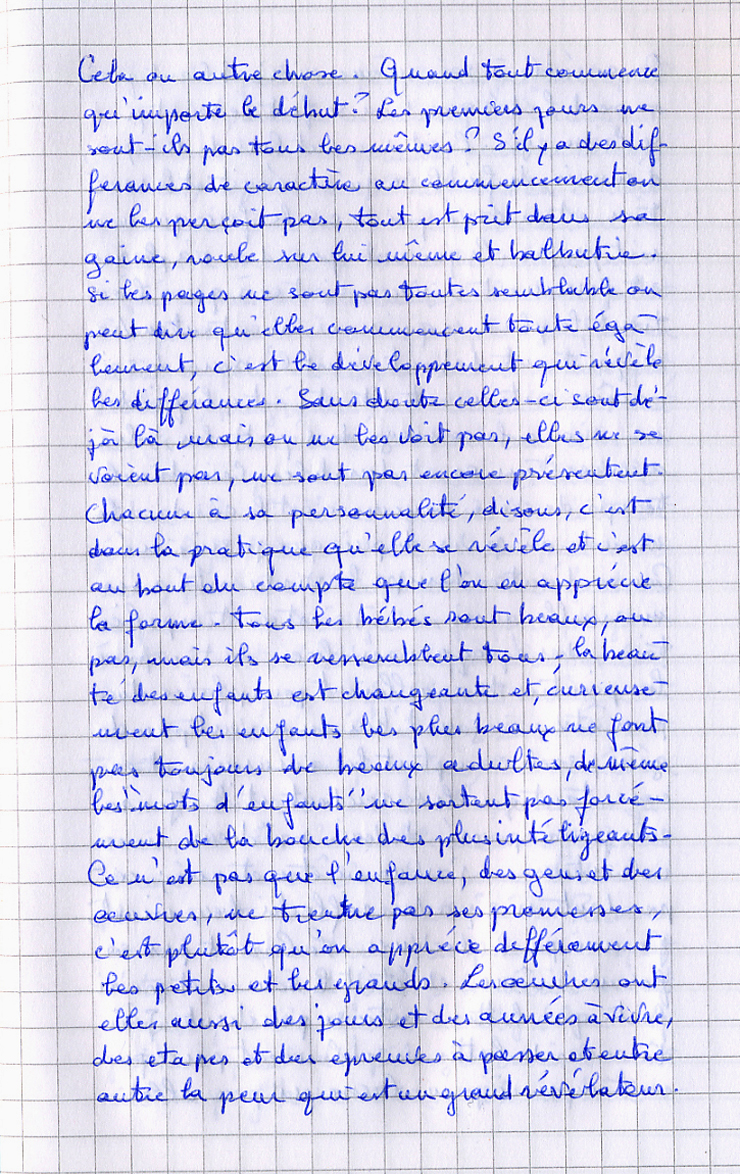 Cela ou autre chose. Quand tout commence
qu'importe le début? Les premiers jours ne
sont-ils pas tous les mêmes? S'il y a des dif-
ferances de caractère au commencement on
ne les perçoit pas, tout est prit dans sa
gaine, roule sur lui même et balbutie.
Si les pages ne sont pas toutes semblable on
peut dire qu'elles commencent toute éga-
lement, c'est le développement qui révèle
les différances. Sans doute celles-ci sont dé-
jà là mais on ne les voit pas, elles ne se
voient pas, ne sont pas encore présentent.
Chacune à sa personnalité, disons, c'est
dans la pratique qu'elle se révèle et c'est
au bout du compte que l'on en apprécie
la forme. Tous les bébés sont beaux, ou
pas, mais ils se ressemblent tous; la beau-
té des enfants est changeante et, curieuse-
ment les enfants les plus beaux ne font
pas toujours de beaux adultes, de même
les "mots d'enfants" ne sortent pas forcé-
ment de la bouche des plus intéligeants.
Ce n'est pas que l'enfance, des gens et des
oeuvres, ne tienne pas ses promesses,
c'est plutôt qu'on apprécie différement
les petits et les grands. Les oeuvres ont
elles aussi des jours et des années à vivre,
des etapes et des epreuves à passer et entre
autre la peur qui est un grand révélateur.